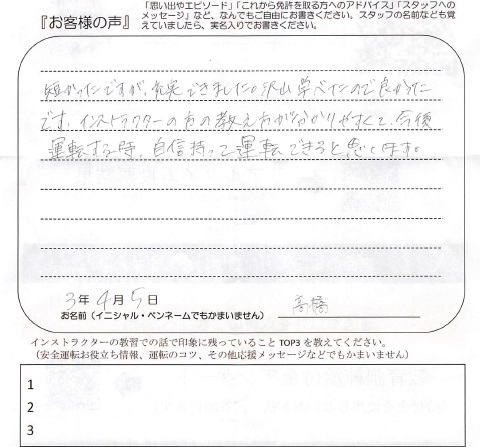 「思い出やエピソード」「これから免許を取る方へのアドバイス」「スタッフへの
『お客様の声』 メッセージ」など、なんでもご自由にお書きください。スタッフの名前なども覚
えていましたら、実名入りでお書きください。
短かったですが、充実できました。沢山学べたので良かった
です。インストラクターの方の教え方が分かりやすくて、今後
運転する時、自信持って運転できると思います。
3年4月5日
お名前（イニシャル・ペンネームでもかまいません） 高橋
インストラクターの教習での話で印象に残っていること TOP3 を教えてください。
（安全運転お役立ち情報、運転のコツ、その他応援メッセージなどでもかまいません）
1
2
3